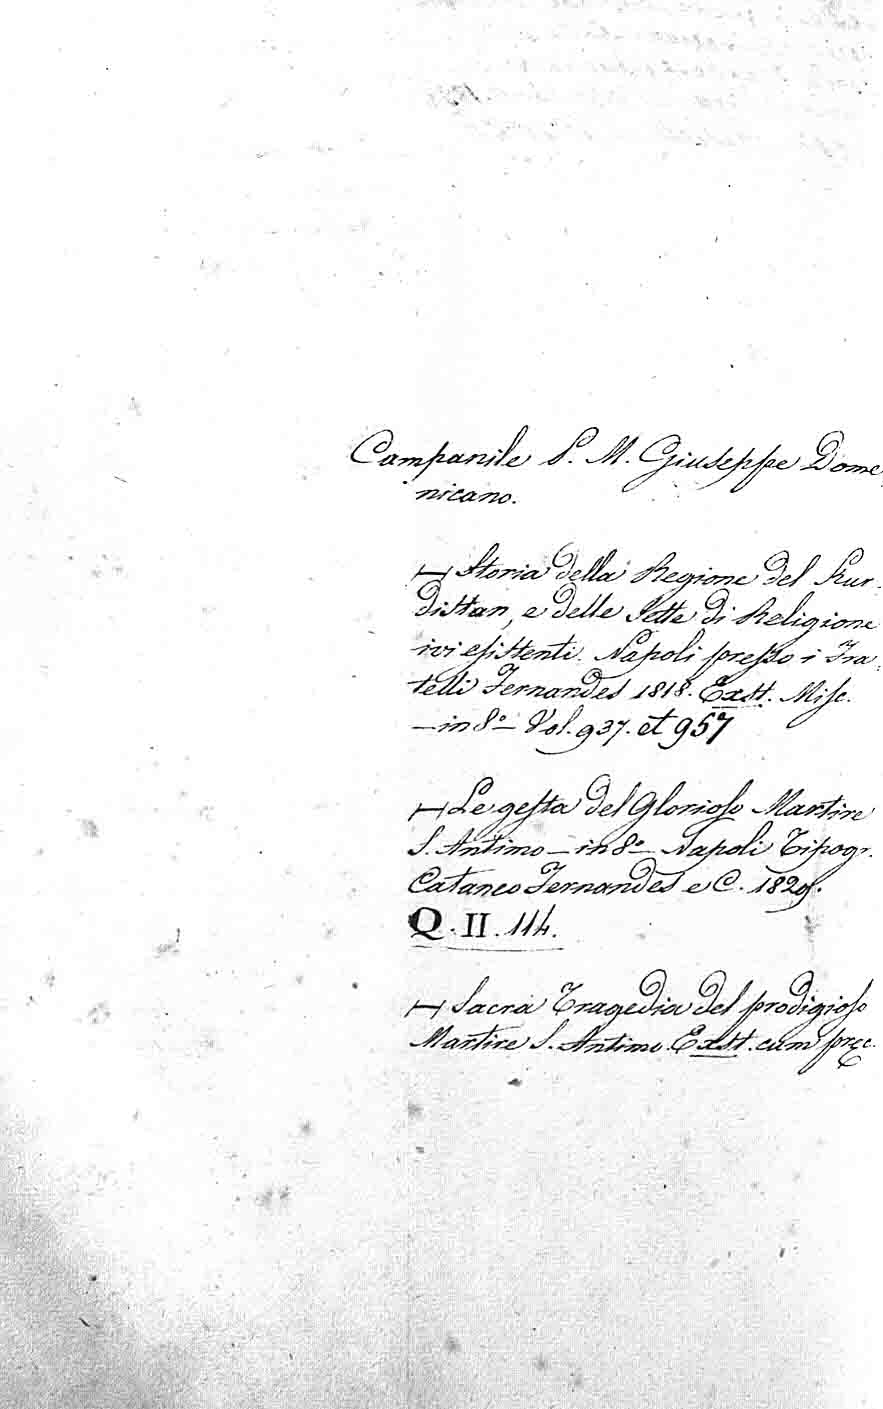 Campanile P. M. Giuseppe Dome-
nicano.
— Storia della Regione del Kur-
distan, e delle Sette di Religione
ivi esistenti. Napoli presso i Fra-
telli Fernandes 1818. Exst. Misc.
— in 8.º — Vol. 937. et 957
— Le gesta del Glorioso Martire
S. Antimo — in 8.º — Napoli Tipogr.
Cataneo Fernandes e C. 1829.
Q. II. 114.
— Sacra Tragedia del prodigioso
Martire S. Antimo. Exst. cum pręc.